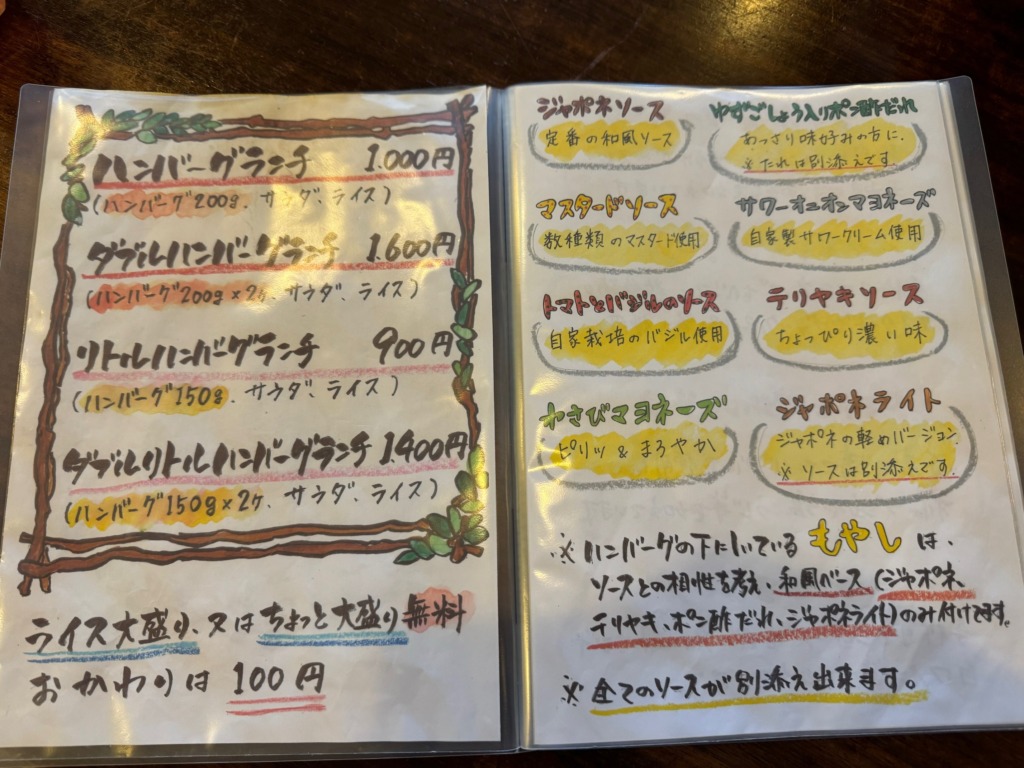 ハンバーグランチ 1.000円
(ハンバーグ200g、サラダ、ライス)
ダブルハンバーグランチ 1.600円
(ハンバーグ200g×2ケ、サラダ、ライス)
リトルハンバーグランチ 900円
(ハンバーグ150g、サラダ、ライス)
ダブルリトルハンバーグランチ 1.400円
(ハンバーグ150g×2ケ、サラダ、ライス)
ライス大盛り、又はちょっと大盛り無料
おかわりは 100円
ジャポネソース
定番の和風ソース
ゆずごしょう入りポン酢だれ
あっさり味好みの方に、
※たれは別添えです。
マスタードソース
数種類のマスタード使用
サワーオニオンマヨネーズ
自家製サワークリーム使用
トマトとバジルのソース
自家栽培のバジル使用
テリヤキソース
ちょっぴり濃い味
わさびマヨネーズ
ピリッ & まろやか
ジャポネライト
ジャポネの軽めバージョン
※ソースは別添えです。
※ハンバーグの下にしいているもやしは、
ソースとの相性を考え、和風ベース(ジャポネ、
テリヤキ、ポン酢だれ、ジャポネライト)のみ付けてます。
※全てのソースが別添え出来ます。